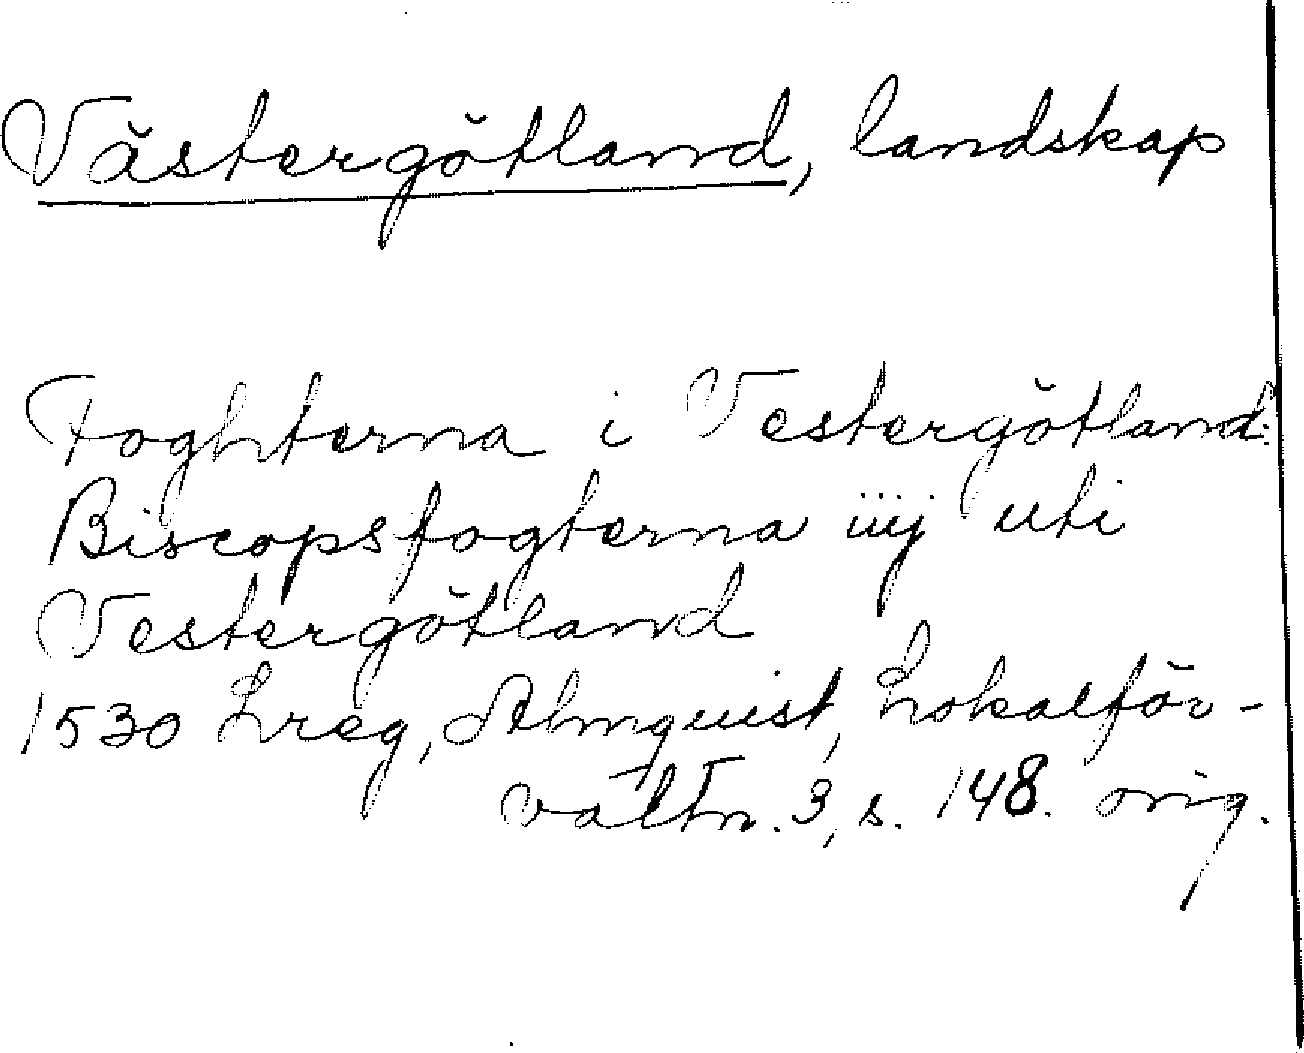 Västergötland, landskap
Foghterna i Vestergötland:
Biscopsfogterna iiij uti
Vestergötland
1530 Lreg, Almquist, Lokalför-
valtn. 3, s. 148. orig.